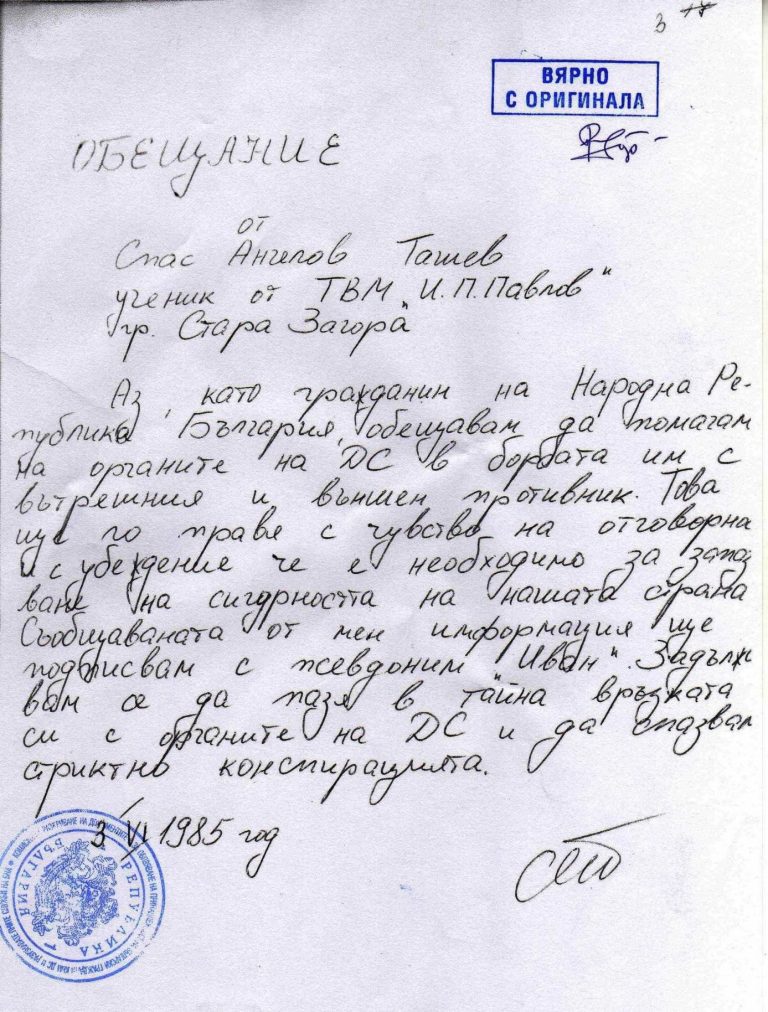 3 17
ВЯРНО
С ОРИГИНАЛА
ОБЕЩАНИЕ
от
Спас Ангелов Ташев
ученик от ТВМ „И.П.Павлов"
гр. Стара Загора
Аз като гражданин на Народна Ре-
публика България, обещавам да помагам
на органите на ДС в борбата им с
вътрешния и външен противник. Това
ще го правя с чувство на отговорна
и с убеждение че е необходимо за запаз
ване на сигурността на нашата страна
Съобщаваната от мен информация ще
подписвам с псевдоним "Иван". Задълж
вам се да пазя в тайна връзката
си с органите на ДС и да спазвам
стриктно конспирацията.
3 VI 1985 год
РЕПУБЛИКА БЪЛГАРИЯ